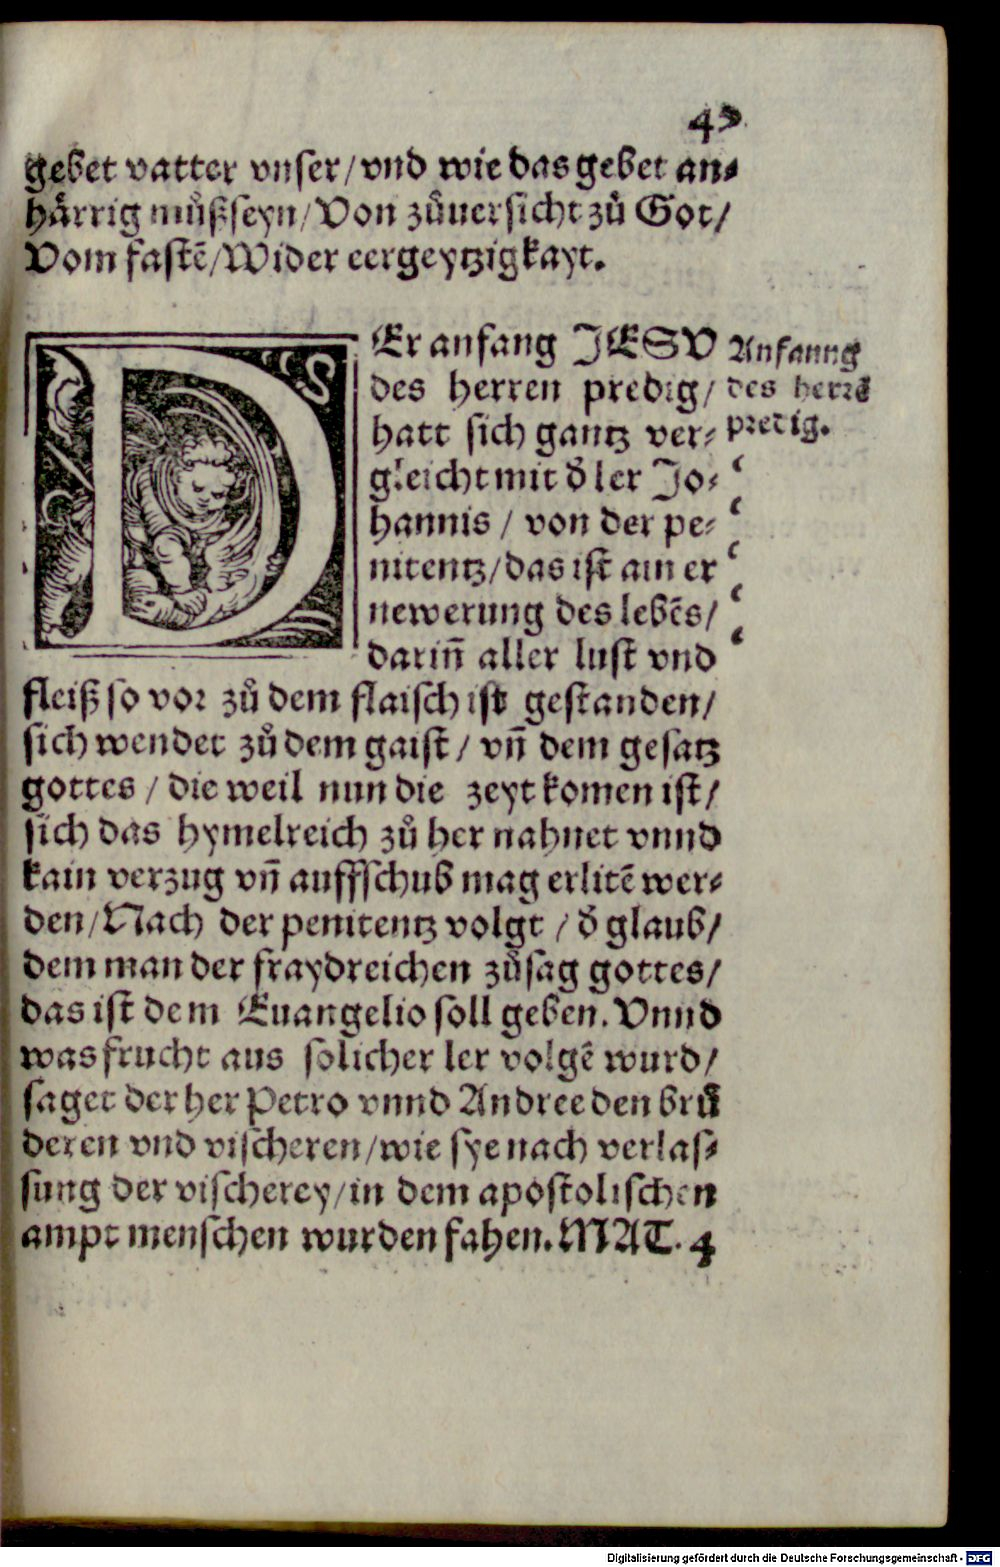 45
gebet vatter vnser/vnd wie das gebet an⸗
hårrig můß seyn/Von zůuersicht zů Got/
Vom fastē/Wider eergeytzigkayt.
DEr anfang JESV
des herren predig/
hatt sich gantz ver⸗
gleicht mit d̕ ler Jo⸗
hannis / von der pe⸗
nitentz/das ist ain er
newerung des lebēs/
dariñ aller lust vnd
fleiß so vor zů dem flaisch ist gestanden/
sich wendet zů dem gaist / vñ dem gesatz
gottes / die weil nun die zeyt komen ist/
sich das hymelreich zů her nahnet vnnd
kain verzug vñ auffschub mag erlitē wer⸗
den/Nach der penitentz volgt / d̕ glaub/
dem man der fraydreichen zůsag gottes/
das ist dem Euangelio soll geben. Vnnd
was frucht aus solicher ler volgē wurd/
saget der her Petro vnnd Andree den brů
deren vnd vischeren/wie sye nach verlas⸗
sung der vischerey/in dem apostolischen
ampt menschen wurden fahen. MAT. 4
Anfanng
des herrē
predig.
Digitalisierung gefördert durch die Deutsche Forschungsgemeinschaft - DFG